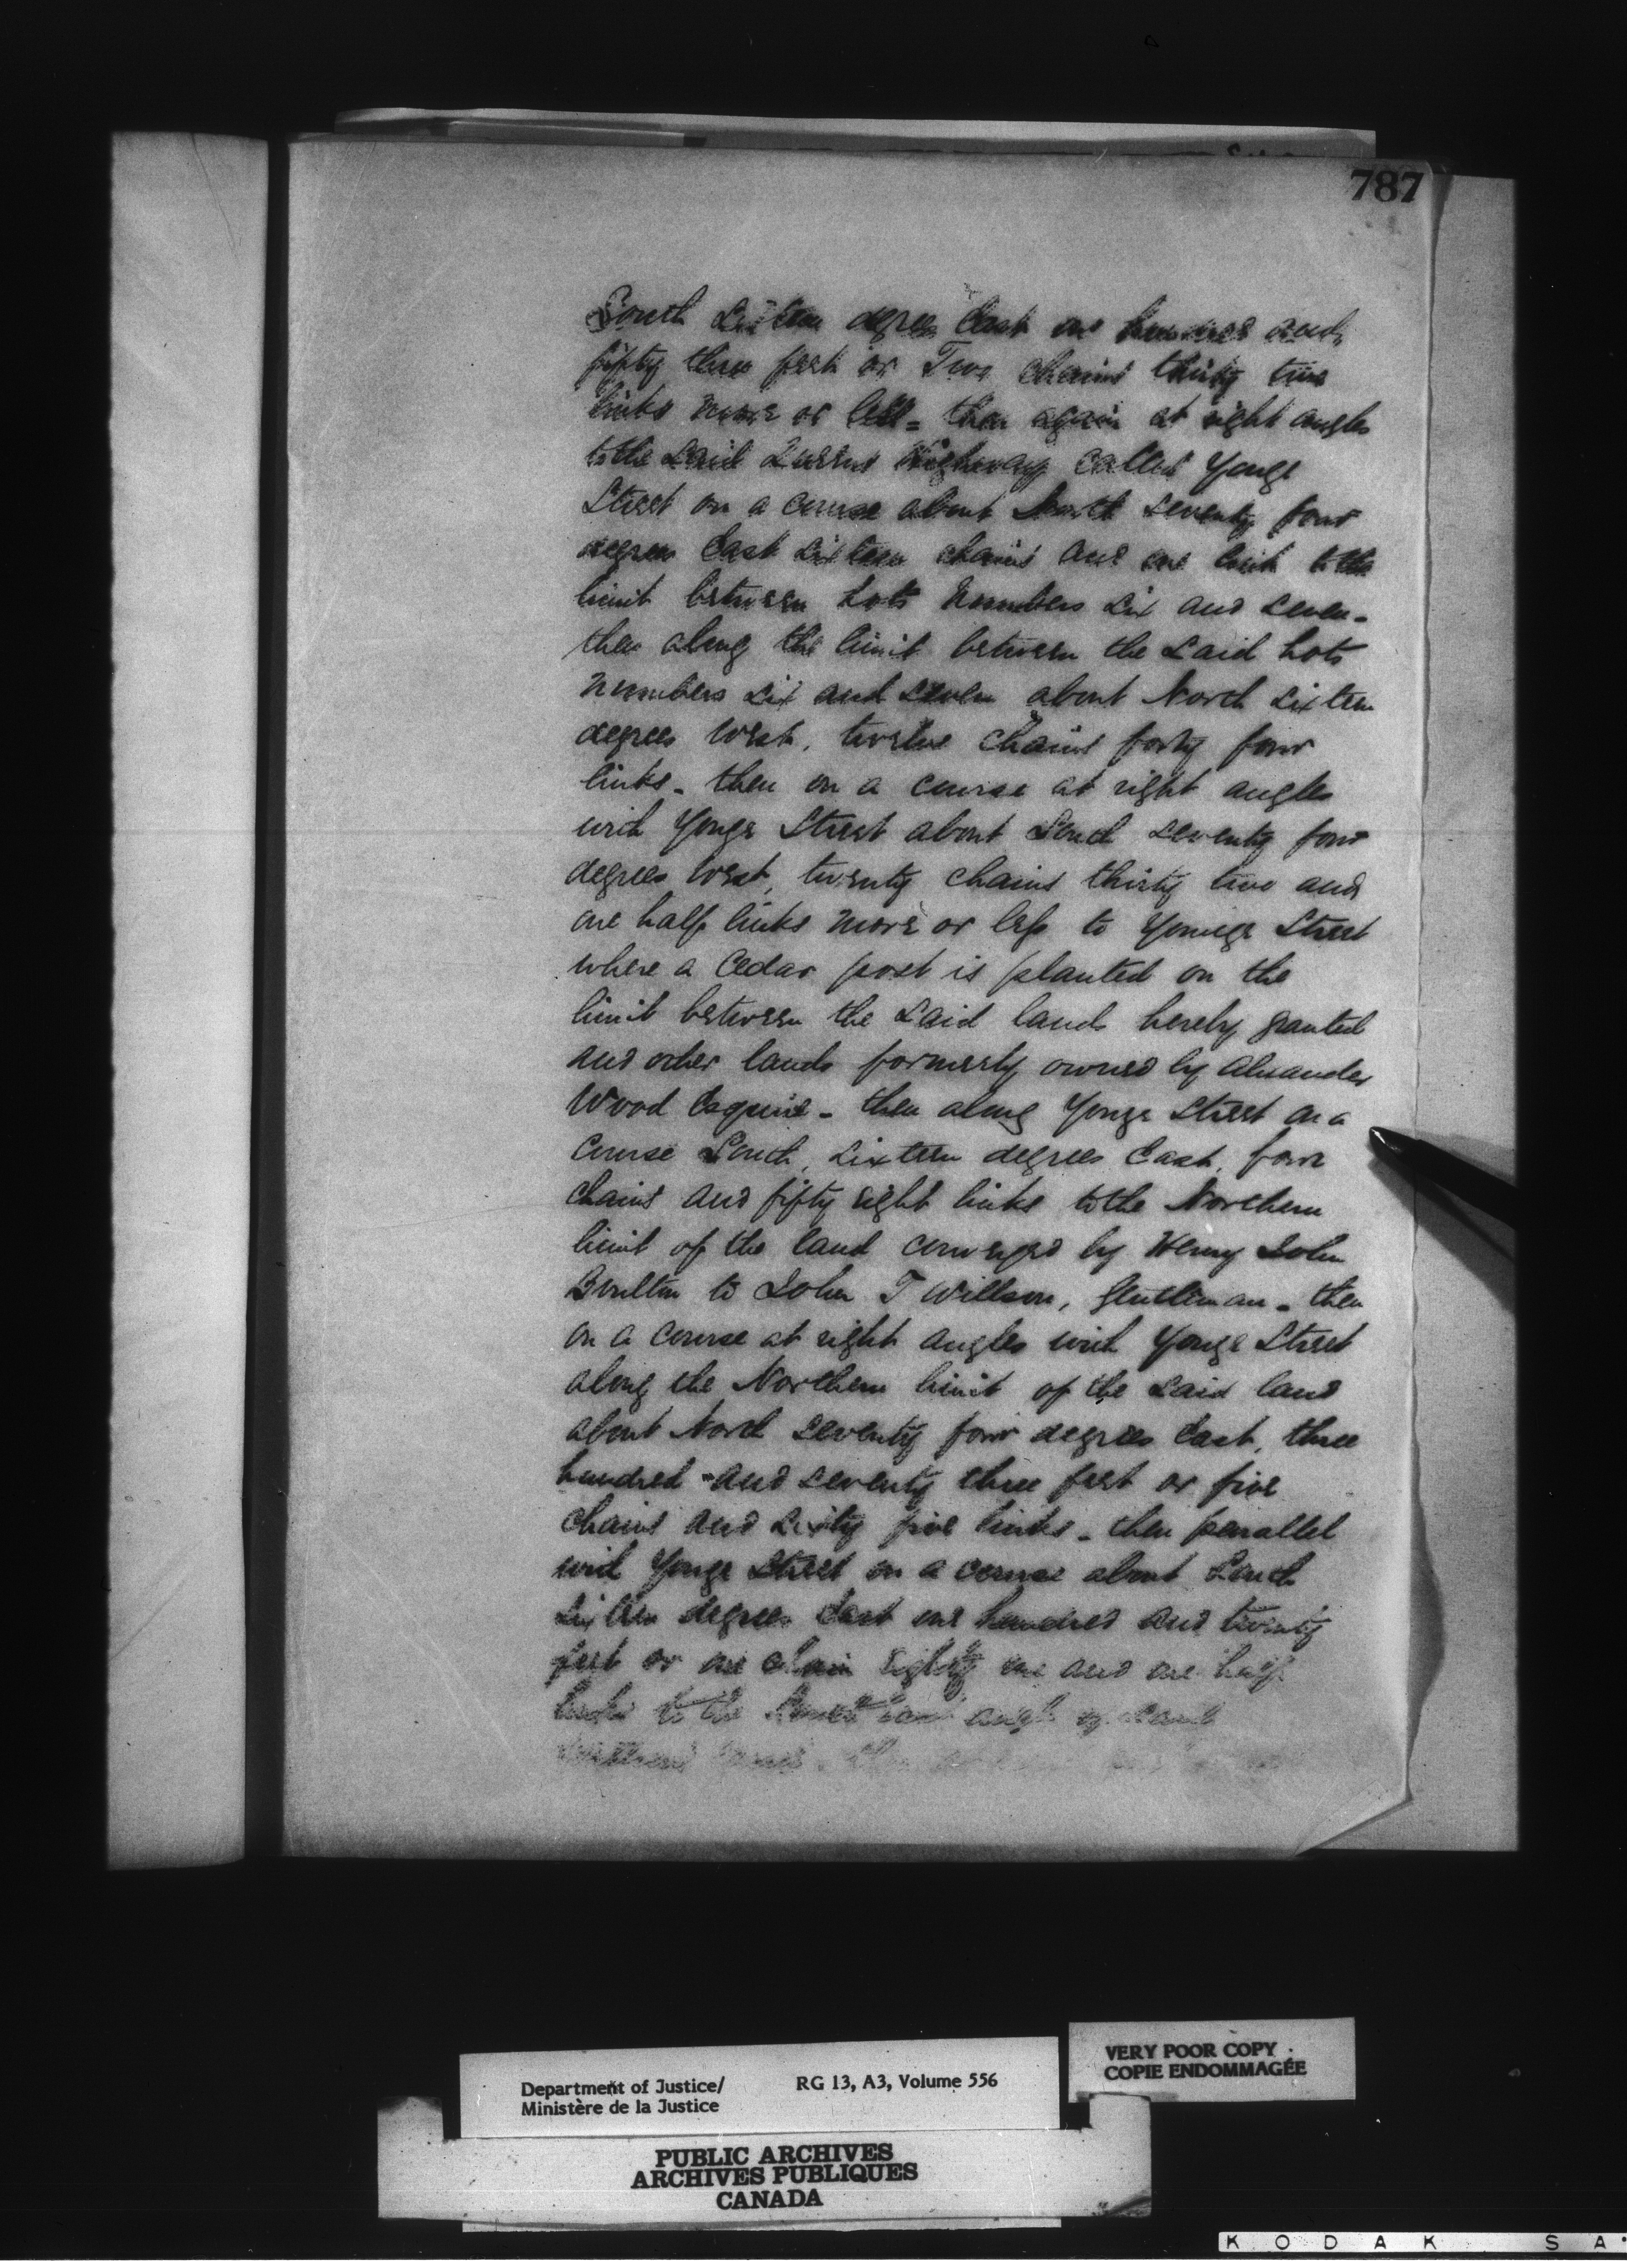 787
South Sixteen degrees East one hundred and
fifty three feet or Two chains thirty two
links more or less = then again at right angles
to the said Queens Highway called Yonge
Street on a course about North seventy four
degrees East sixteen chains and one link to the
limit between Lots Numbers six and seven -
then along the limit between the said Lots
Numbers six and seven about North sixteen
degrees West, twelve chains forty four
links - then on a course at right angles
with Yonge Street about South seventy four
degrees West, twenty chains thirty two and
one half links more or less to Yonge Street
where a Cedar post is planted on the
limit between the said lands hereby granted
and other lands formerly owned by Alexander
Wood Esquire - then along Yonge Street on a
course South, sixteen degrees East, four
chains and fifty eight links to the Northern
limit of the land conveyed by Henry John
Boulton to John T Willson, Gentleman - then
on a course at right angles with Yonge Street
along the Northern limit of the said land
about North seventy four degrees East, three
hundred and seventy three feet or five
chains and sixty five links - then parallel
with Yonge Street on a course about South
sixteen degrees East one hundred and twenty
feet or one chain eighty one and one half
links to the East angle of said
then
Department of Justice/
Ministère de la Justice
RG 13, A3, Volume 556
VERY POOR COPY
COPIE ENDOMMAGÉE
PUBLIC ARCHIVES
ARCHIVES PUBLIQUES
CANADA
KODAK SA